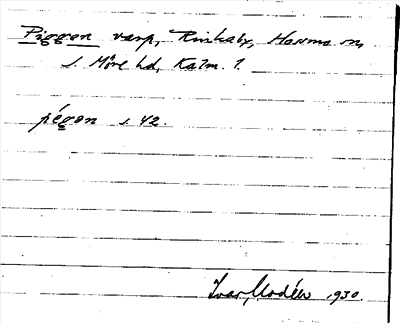 Piggen varp, Rinkaby, Hossmo sn,
S. Möre hd, Kalm. l.
pégen s. 42.
Ivar Modéer 1930.